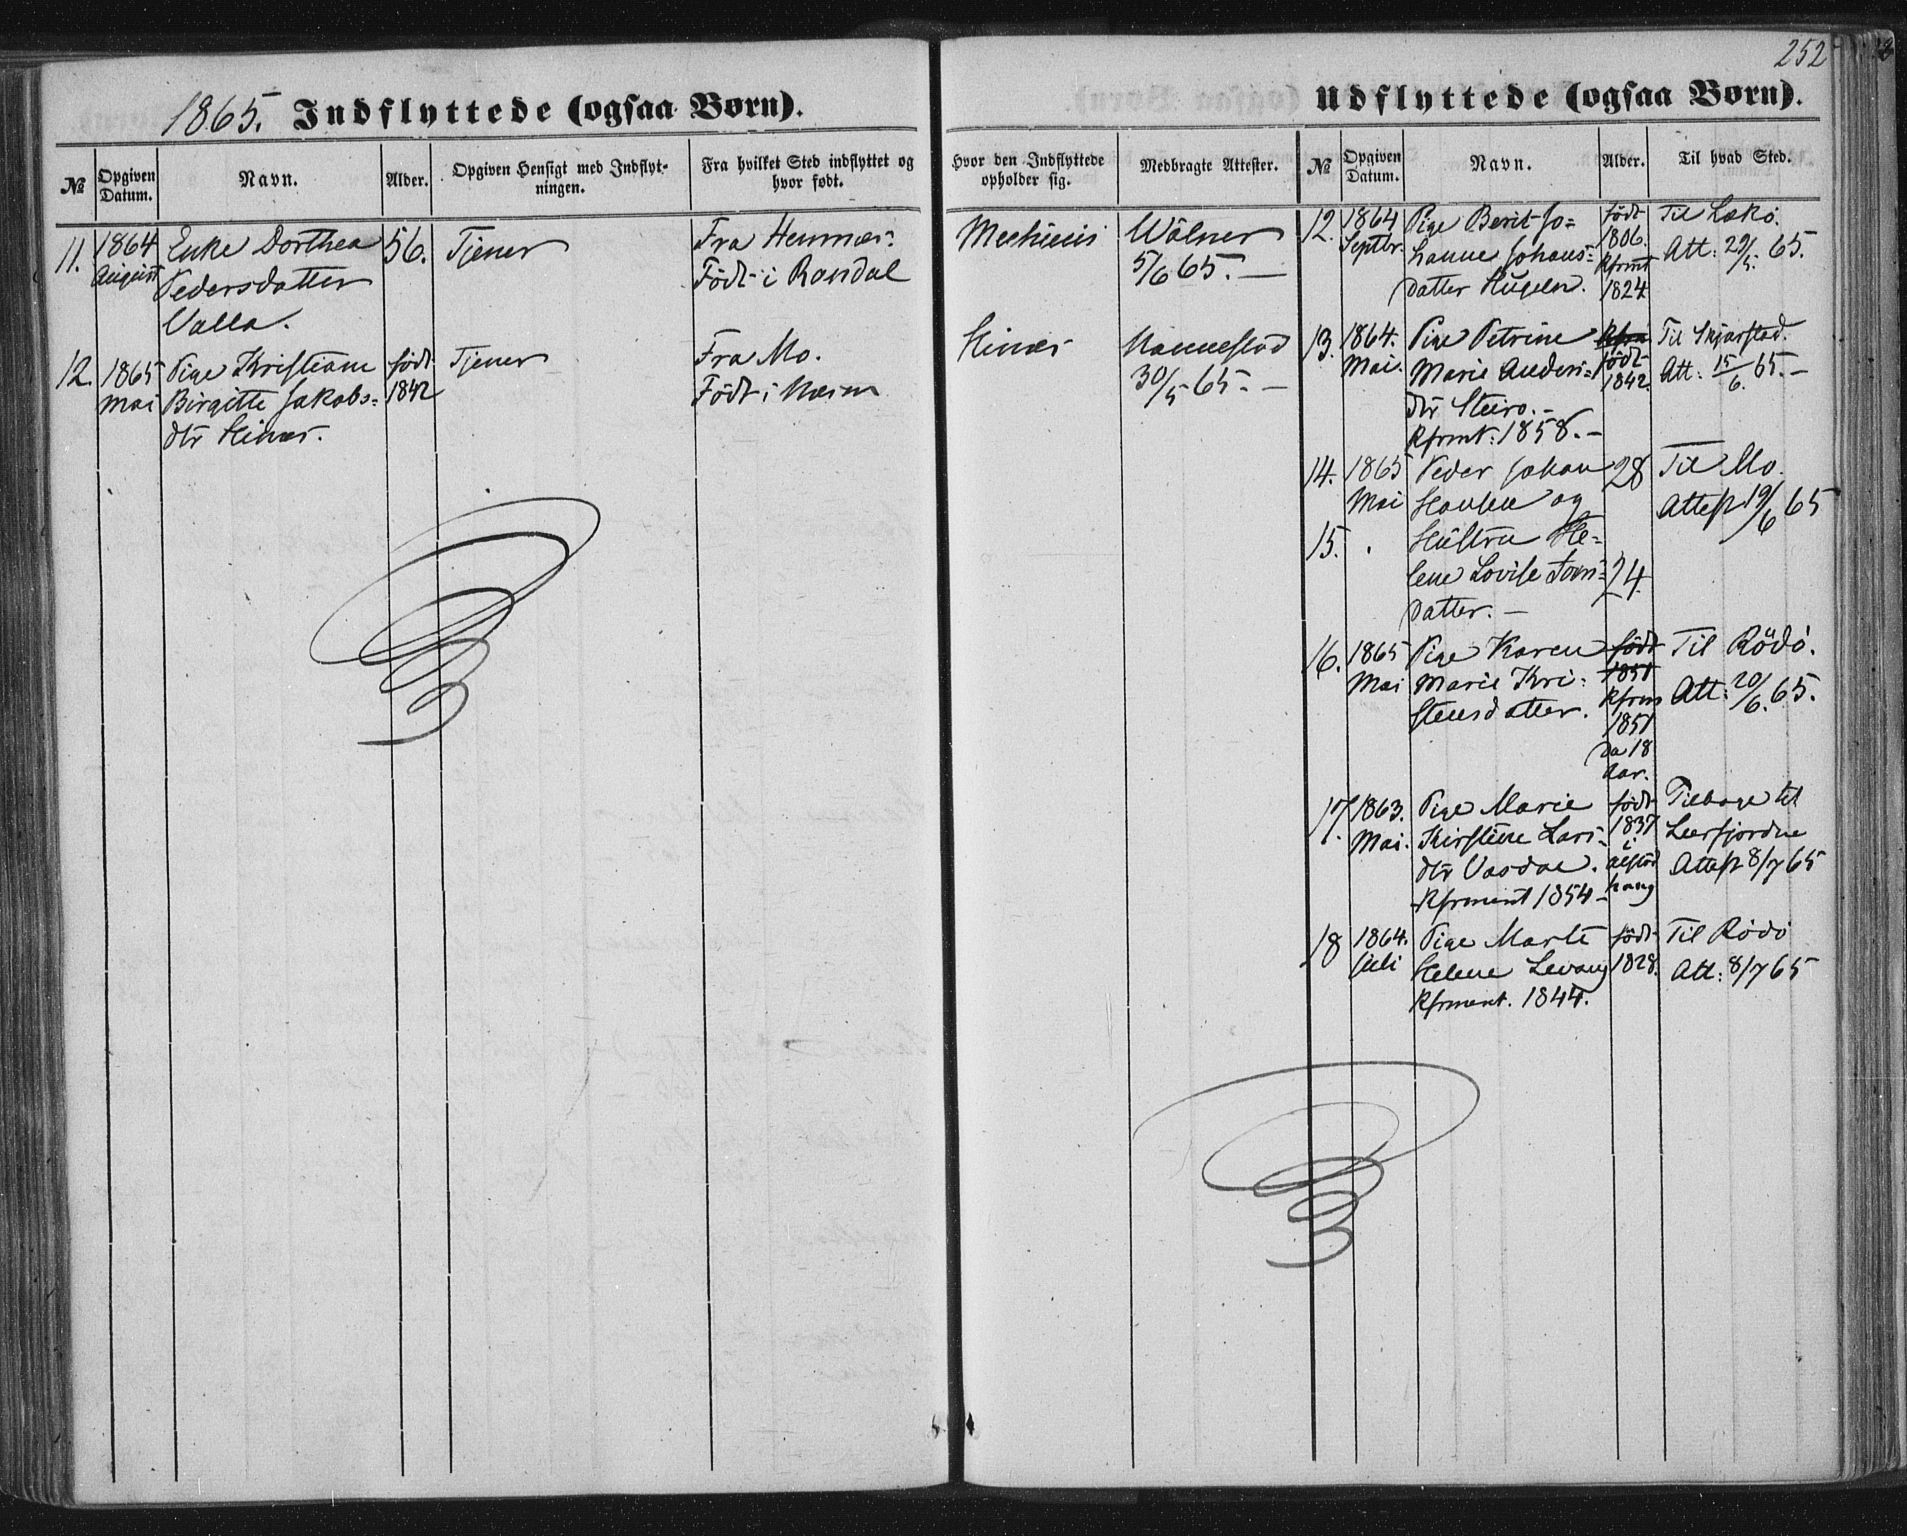 252
1865. Indflyttede (ogsaa Børn).
№
Opgiven Datum.
Navn.
Alder.
Opgiven Hensigt med Indflyt-
ningen.
Fra hvilket Sted indflyttet og
hvor født.
Hvor den Indflyttede
opholder sig.
Medbragte Attester.
11.
1864
August
Enke Dorthea
Pedersdatter
Valla.
56.
Tjener
Fra Hemnæs.
Födt i Randal
Wölner
5/6 65. —
12.
1865
Mai
Pige Kristiane
Birgitte Jakobs=
dtr Hinæs.
födt
1842
Tjener
Fra Mo.
Födt i Næsna
Hinæs
Nannestad
30/5 65. —
Udflyttede (ogsaa Børn).
№
Opgiven Datum.
Navn.
Alder.
Til hvad Sted.
12.
1864
Septbr.
Pige Berit Jo=
hanne Johans=
datter Hugeln.
födt
1806.
Kfrmt
1824
Til Lökö.
Att: 29/5. 65.
13.
1864.
Mai.
Pige Petrine
Marie Anders=
dtr Steiro.-
Kfrmt: 1858. —
födt
1842.
Til Skjærstad.
Att: 15/6. 65. —
14.
1865
Mai
Peder Johan
Hansen og
28
Til Mo.
Attest 19/6 65
15.
Hustru He=
lene Lovise Tom=
datter. —
24
16.
1865
Mai
Pige Karen
Marie Kri=
stensdatter.
födt
1851
Kfrm
1851
da 18
Aar.
Til Rödö.
Att: 20/6. 65.
17.
1863.
Mai.
Pige Marie
Kirstine Lars=
dtr Vasdal.
Kfrment 1854 -
födt
1837
i
Alstad
haug
Tilbage til
Leerfjorden
Attest 8/7 65
18
1864.
Juli
Pige Marte
Helene Levang
Kfrment. 1844.
födt
1828.
Til Rödö
Att: 8/7 65